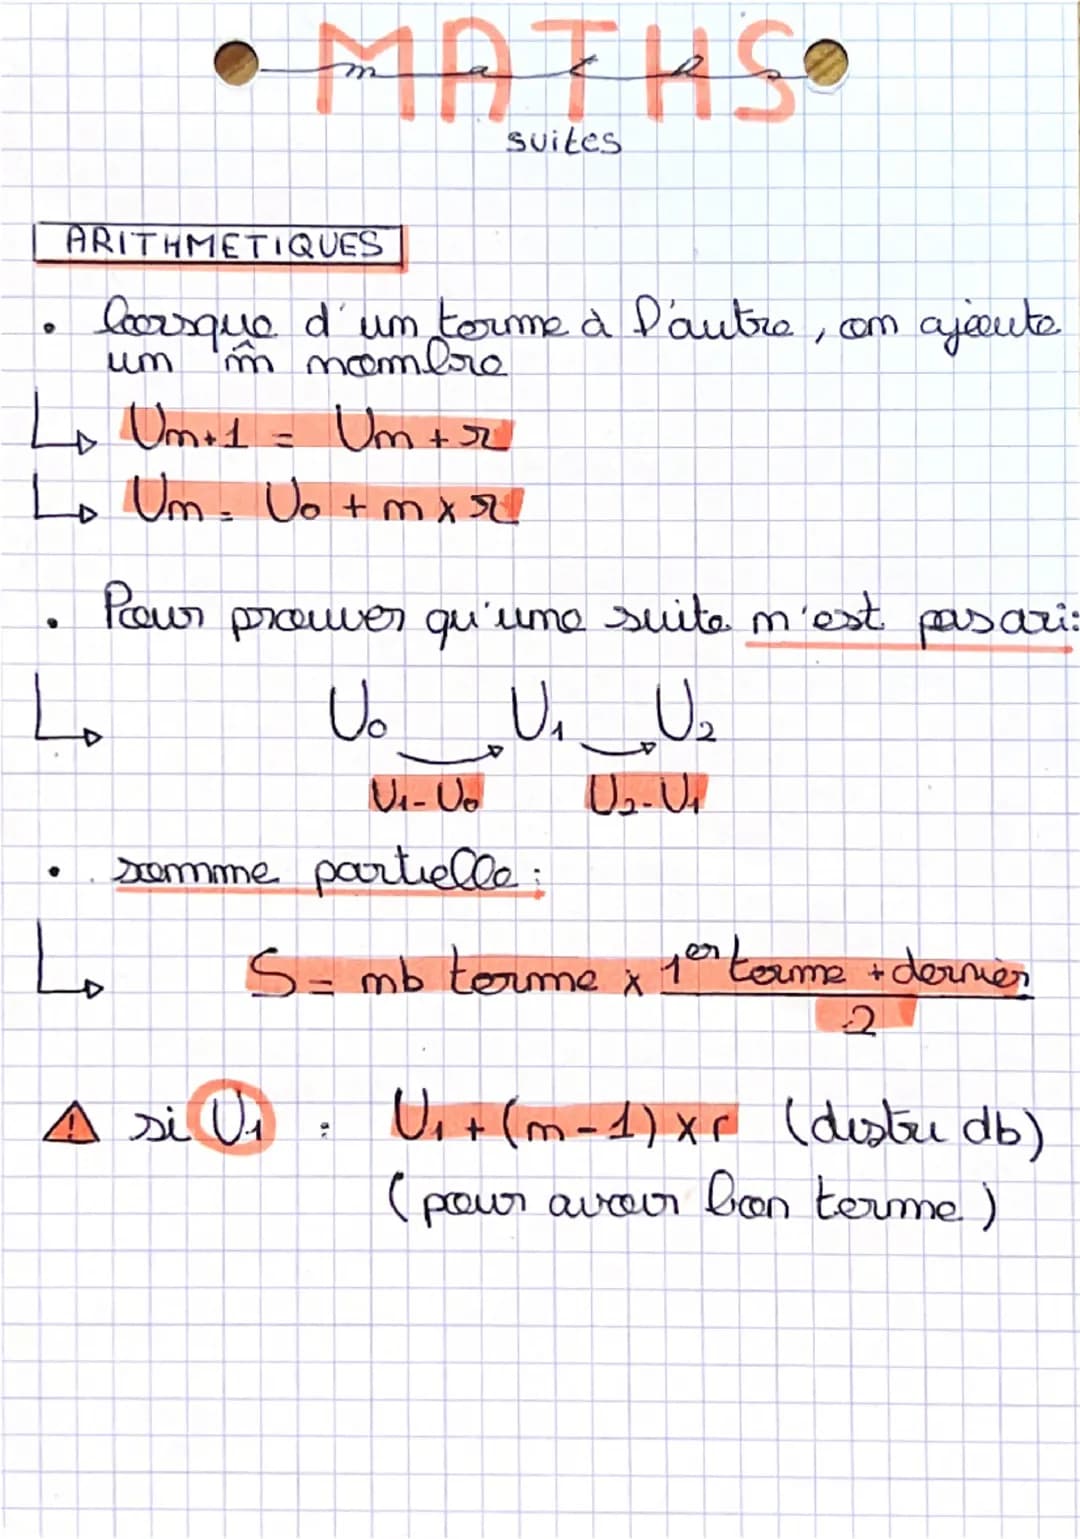 MATHS
maths
suites
ARITHMETIQUES
• lorsque d'un terme à l'autre, on ajoute
un m̂ nombre
↳ Un+1 = Un + r
↳ Un = U0 + n x r
• Pour prouver qu'une suite n'est pas ari:
↳ U0 U1 U2
U1-U0 U2-U1
• somme partielle :
↳ S = nb terme x 1er terme + dernier
2
⚠ si U1 : U1 + (n-1) x r (distri db)
(pour avoir bon terme)